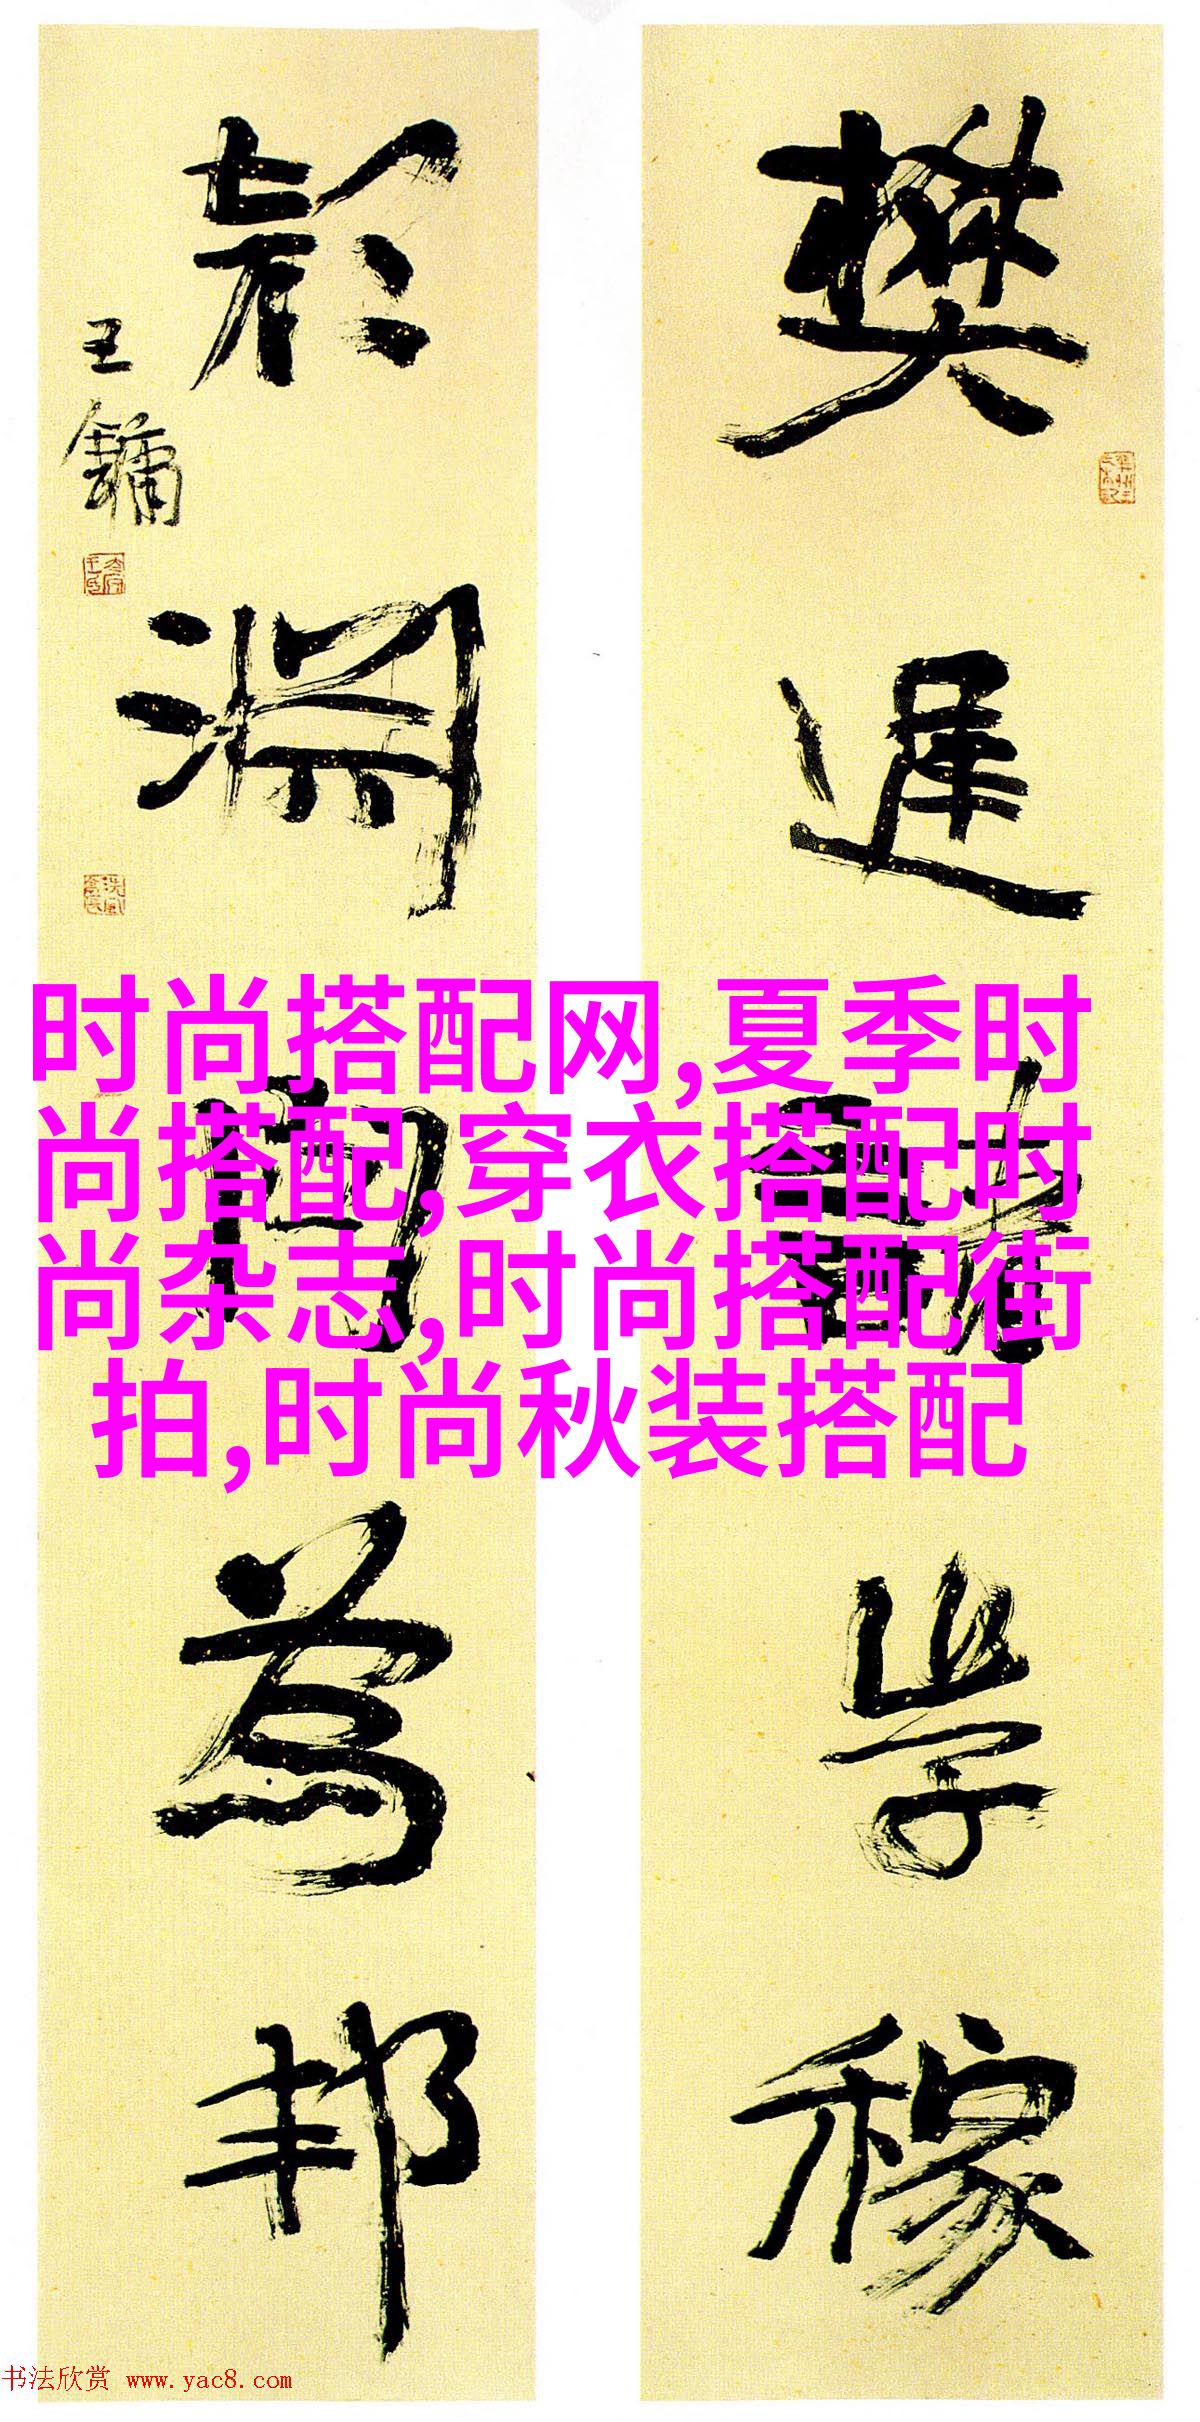 樊遲請學稼
顔淵問為邦
王鏞
时尚搭配网,夏季时
尚搭配,穿衣搭配时
尚杂志,时尚搭配街
拍,时尚秋装搭配
书法欣赏 www.yac8.com